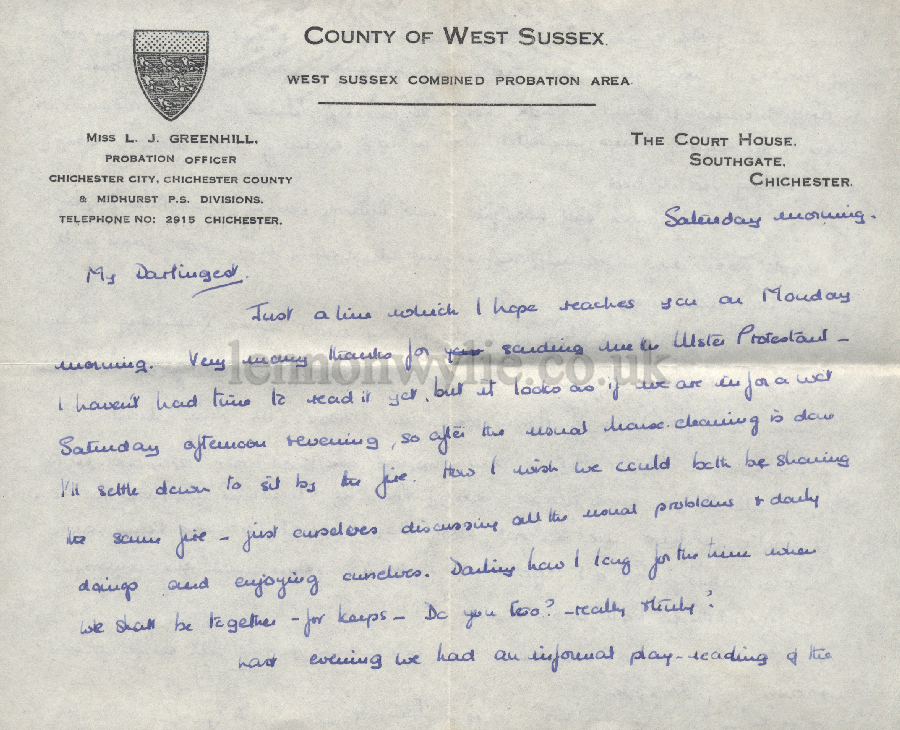 COUNTY OF WEST SUSSEX.
WEST SUSSEX COMBINED PROBATION AREA.
MISS L. J. GREENHILL,
PROBATION OFFICER
CHICHESTER CITY, CHICHESTER COUNTY
& MIDHURST P.S. DIVISIONS.
TELEPHONE NO: 2915 CHICHESTER.
THE COURT HOUSE,
SOUTHGATE,
CHICHESTER.
Saturday morning.
My Darlingest,
Just a line which I hope reaches you on Monday
morning. Very many thanks for your sending me the Ulster Protestant -
lennonwylie.co.uk
I haven't had time to read it yet, but it looks as if we are in for a wet
Saturday afternoon & evening, so after the usual house-cleaning is done
I'll settle down to sit by the fire. How I wish we could both be sharing
the same fire - just ourselves discussing all the usual problems & daily
doings and enjoying ourselves. Darling how I long for the time when
we shall be together - for keeps - Do you too? - really & truly?
Last evening we had an informal play-reading of the